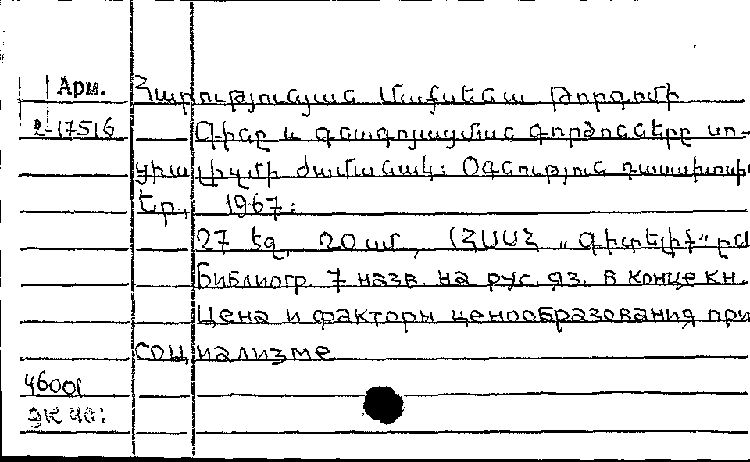 Арм. Հարությունյան Մաքսենա Թորգոմի
2-17516 Գինը և գնագոյացման գործոնները սո-
ցիալիզմի ժամանակ: Օգնություն դասախոսի
Եր., 1967:
27 էջ, 20 սմ, (ՀՍՍՀ „Գիտելիք" ըն
Библиогр. 7 назв. на рус. яз. в конце кн.
Цена и факторы ценообразования при
социализме
46001